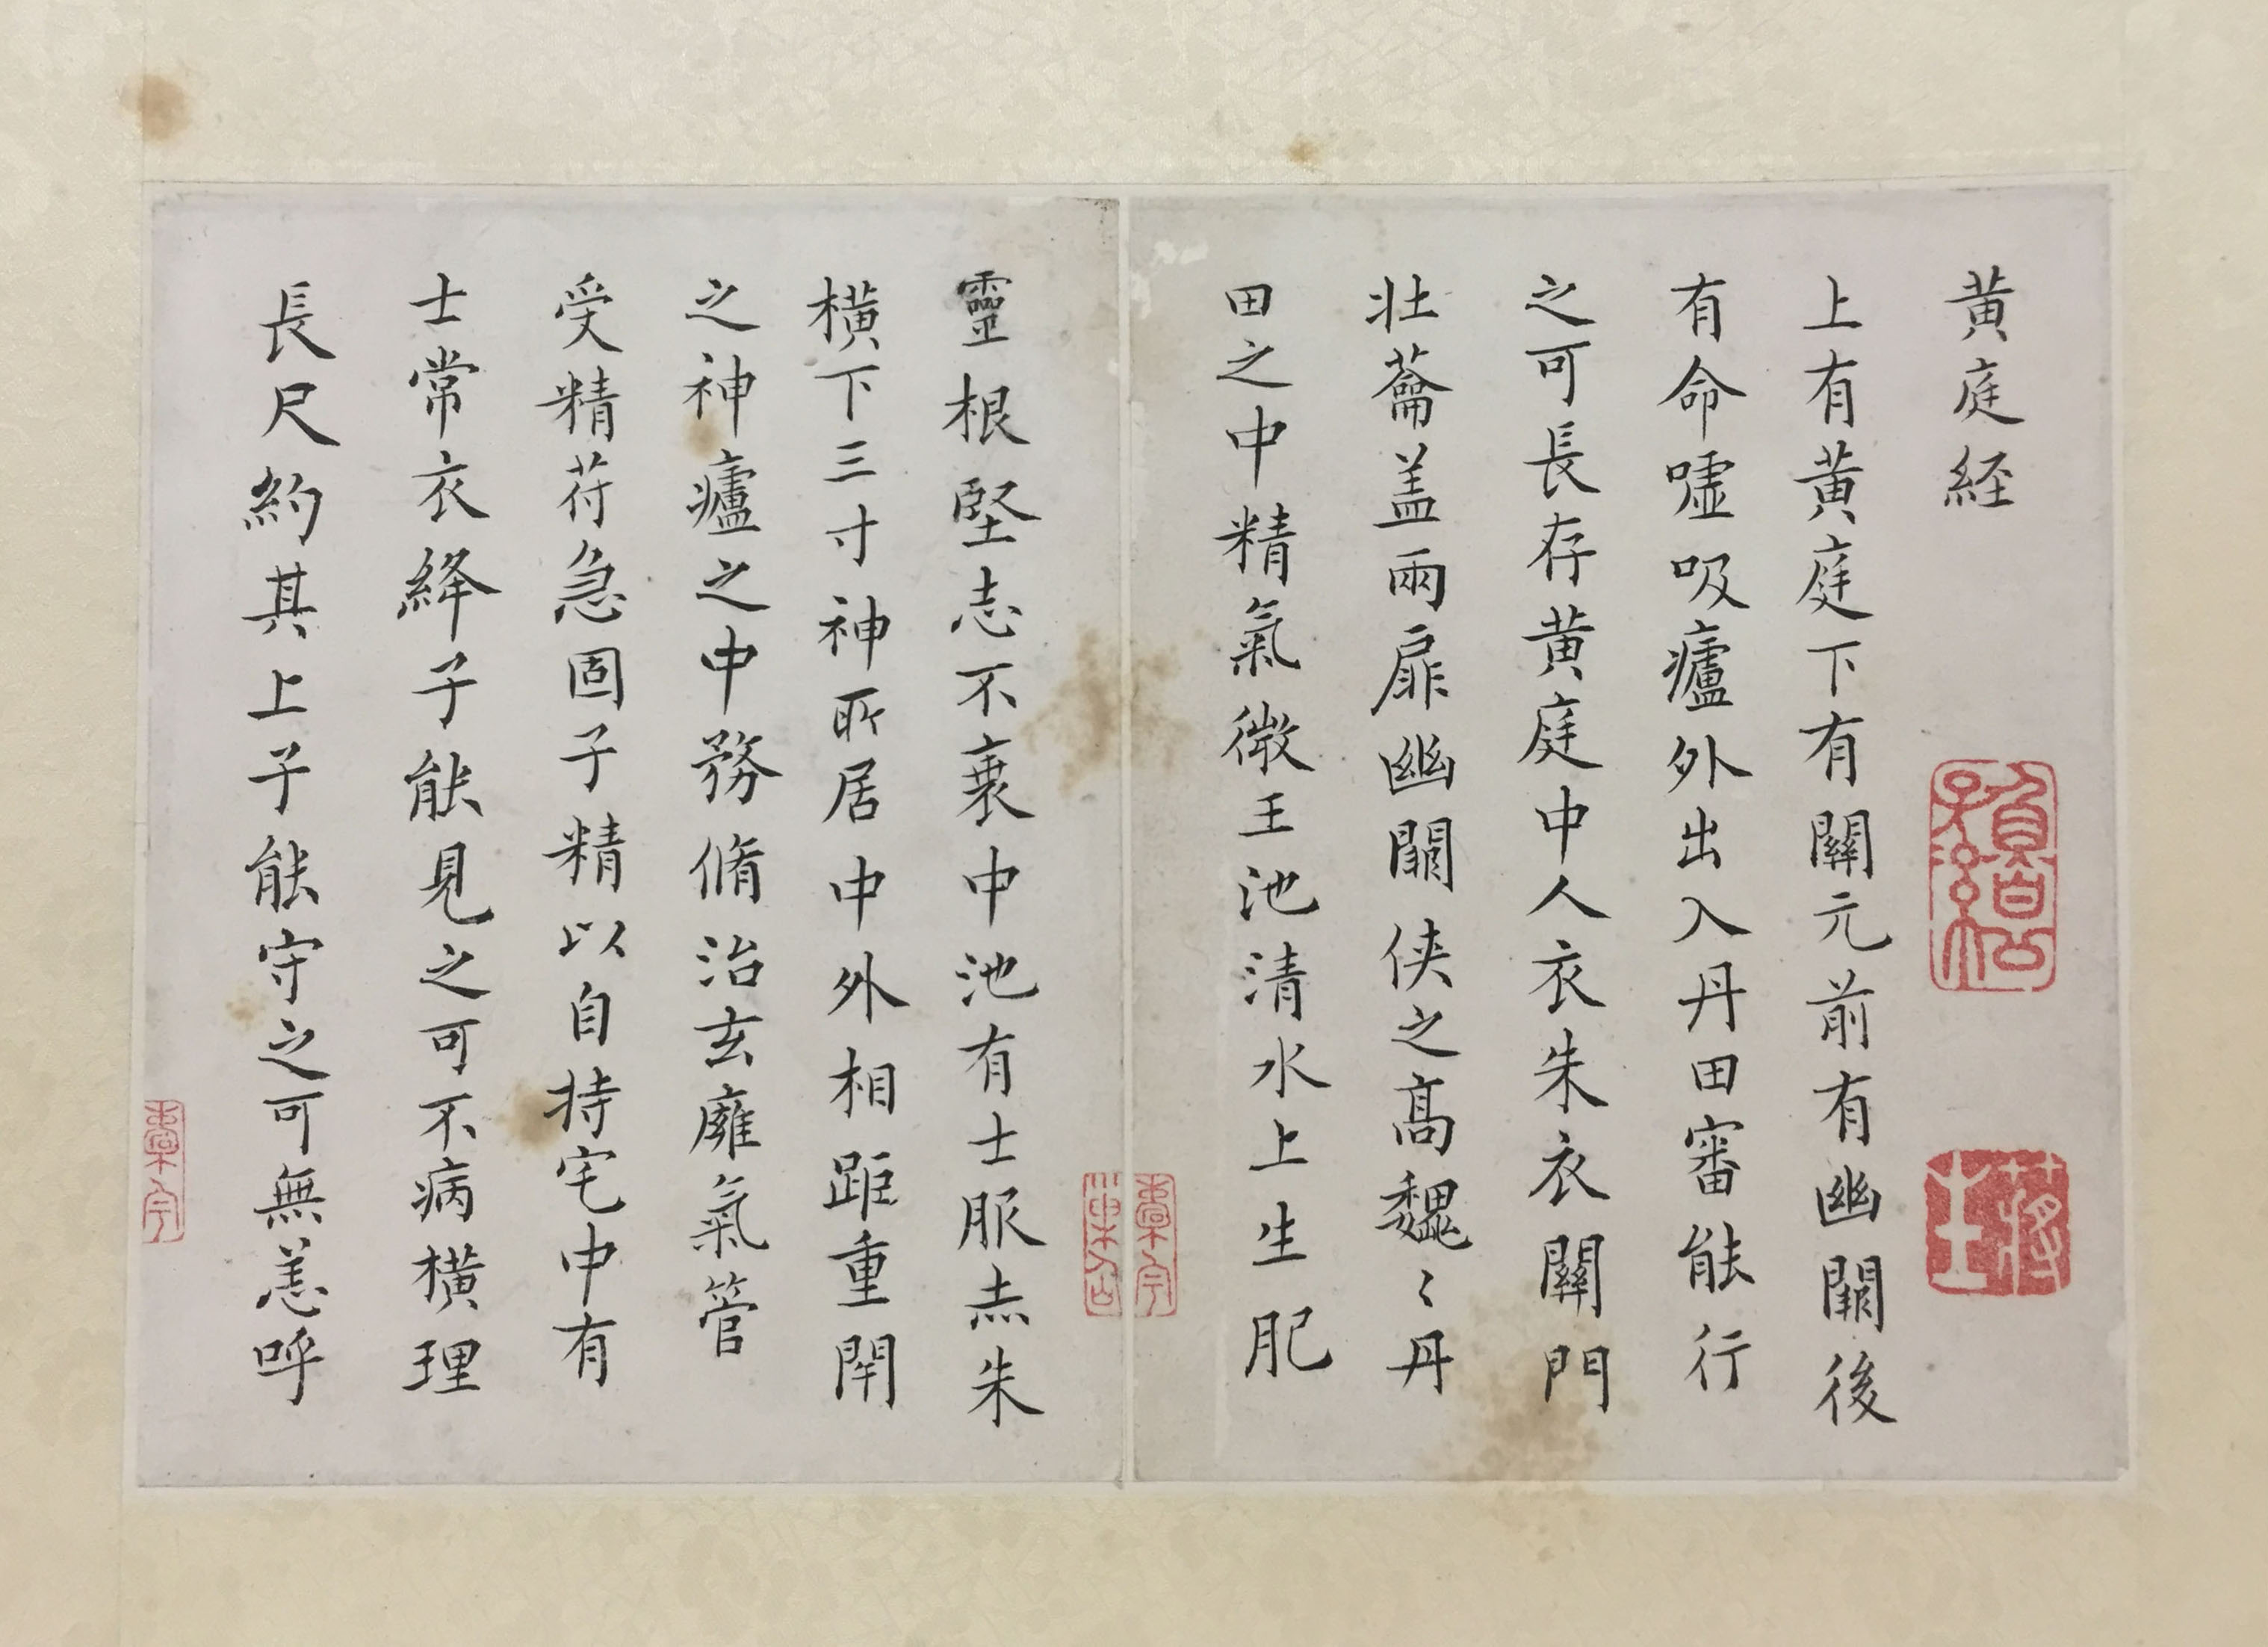 黄庭経
上有黄庭下有關元前有幽闕後
有命嘘吸廬外出入丹田審能行
之可長存黄庭中人衣朱衣關門
壮蘥盖兩扉幽闕俠之髙魏〻丹
田之中精氣微王池清水上生肥
靈根堅志不衰中池有士服赤朱
横下三寸神所居中外相距重閇
之神廬之中務脩治玄廱氣管
受精苻急固子精以自持宅中有
士常衣絳子能見之可不病横理
長尺約其上子能守之可無恙呼
蔣